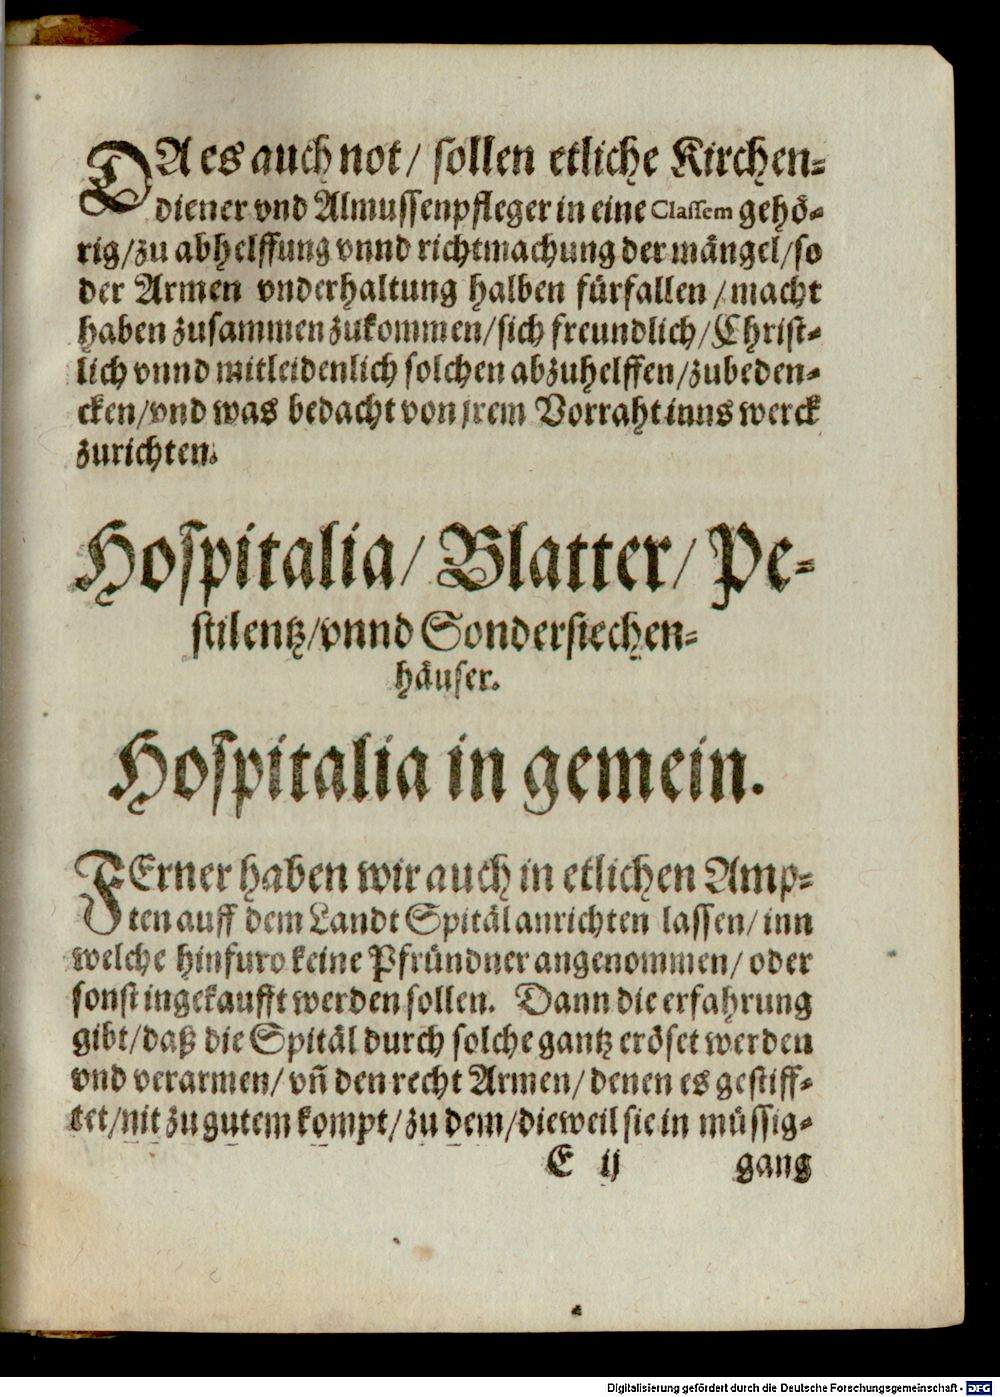 DA es auch not/ sollen etliche Kirchen-
diener vnd Almussenpfleger in eine Classem gehö-
rig/zu abhelffung vnnd richtmachung der mängel/so
der Armen vnderhaltung halben fürfallen/macht
haben zusammen zukommen/sich freundlich/Christ-
lich vnnd mitleidenlich solchen abzuhelffen/zubeden-
cken/vnd was bedacht von jrem Vorraht inns werck
zurichten.
Hospitalia/ Blatter/ Pe-
stilentz/vnnd Sondersiechen-
häuser.
Hospitalia in gemein.
FErner haben wir auch in etlichen Amp-
ten auff dem Landt Spitäl anrichten lassen/ inn
welche hinfuro keine Pfründner angenommen/ oder
sonst ingekaufft werden sollen. Dann die erfahrung
gibt/daß die Spitäl durch solche gantz eröset werden
vnd verarmen/ vñ den recht Armen/ denen es gestiff-
tet/nit zu gutem kompt/ zu dem/dieweil sie in müssig-
E ij gang
Digitalisierung gefördert durch die Deutsche Forschungsgemeinschaft - DFG